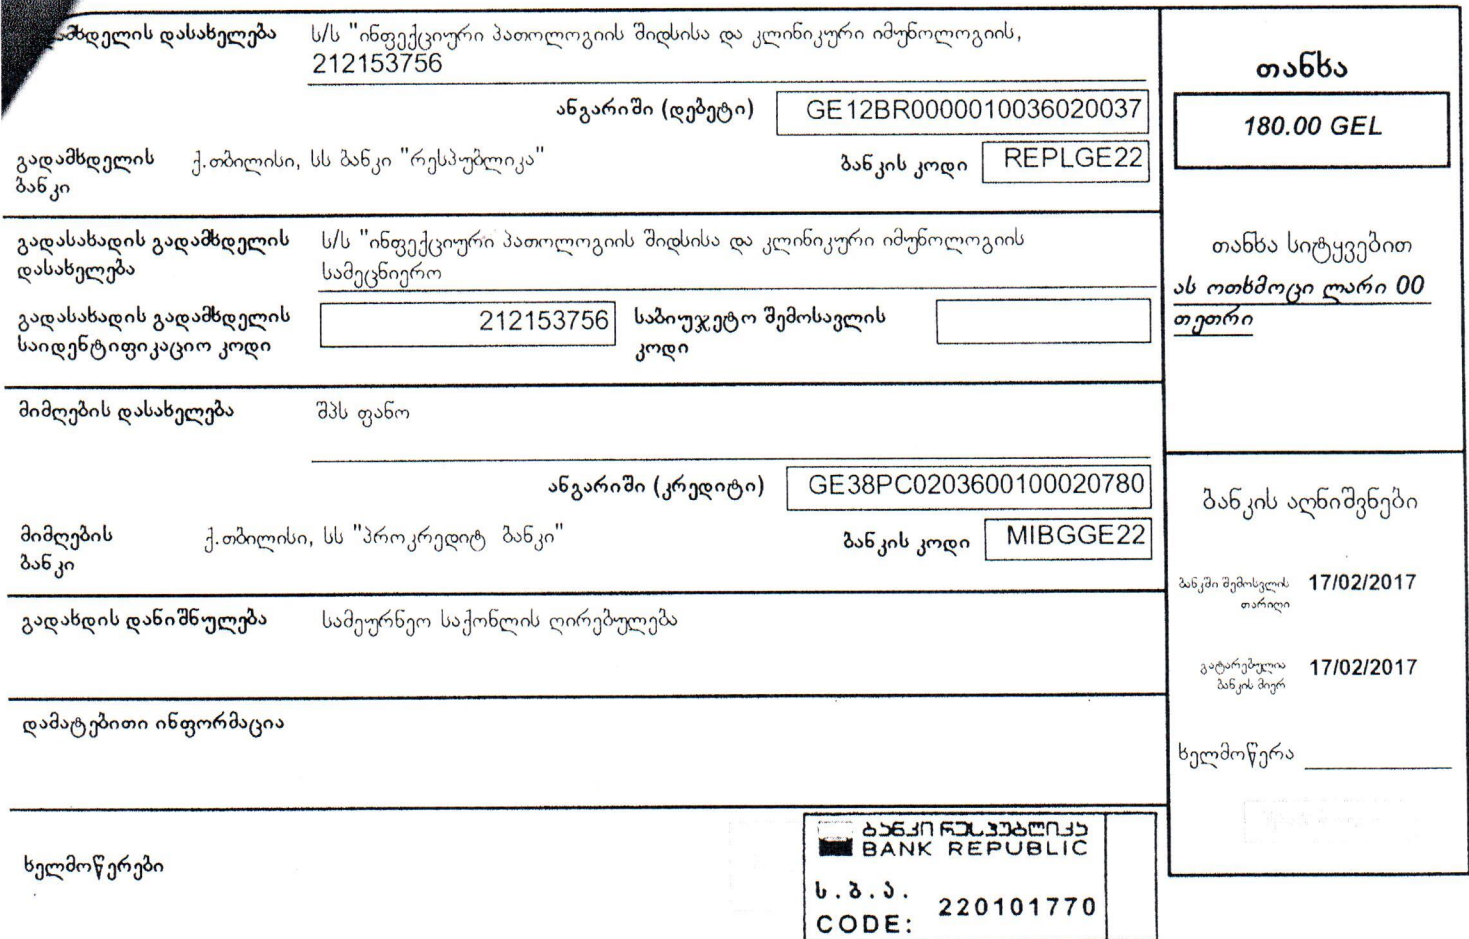 დასახელება ს/ს "ინფექციური პათოლოგიის შიდსისა და კლინიკური იმუნოლოგიის,
212153756
ანგარიში (დებეტი) GE12BR0000010036020037
გადამხდელის ბანკი ქ.თბილისი, სს ბანკი "რესპუბლიკა" ბანკის კოდი REPLGE22
გადასახადის გადამხდელის დასახელება ს/ს "ინფექციური პათოლოგიის შიდსისა და კლინიკური იმუნოლოგიის
სამეცნიერო
გადასახადის გადამხდელის საიდენტიფიკაციო კოდი 212153756 საბიუჯეტო შემოსავლის კოდი
მიმღების დასახელება შპს ფანო
ანგარიში (კრედიტი) GE38PC0203600100020780
მიმღების ბანკი ქ.თბილისი, სს "პროკრედიტ ბანკი" ბანკის კოდი MIBGGE22
გადახდის დანიშნულება სამეურნეო საქონლის ღირებულება
დამატებითი ინფორმაცია
ხელმოწერები
ბანკი რესპუბლიკა
BANK REPUBLIC
ს.ბ.ა.
CODE: 220101770
თანხა
180.00 GEL
თანხა სიტყვებით
ას ოთხმოცი ლარი 00
თეთრი
ბანკის აღნიშვნები
ბანკში შემოსვლის თარიღი 17/02/2017
გატარებულია ბანკის მიერ 17/02/2017
ხელმოწერა